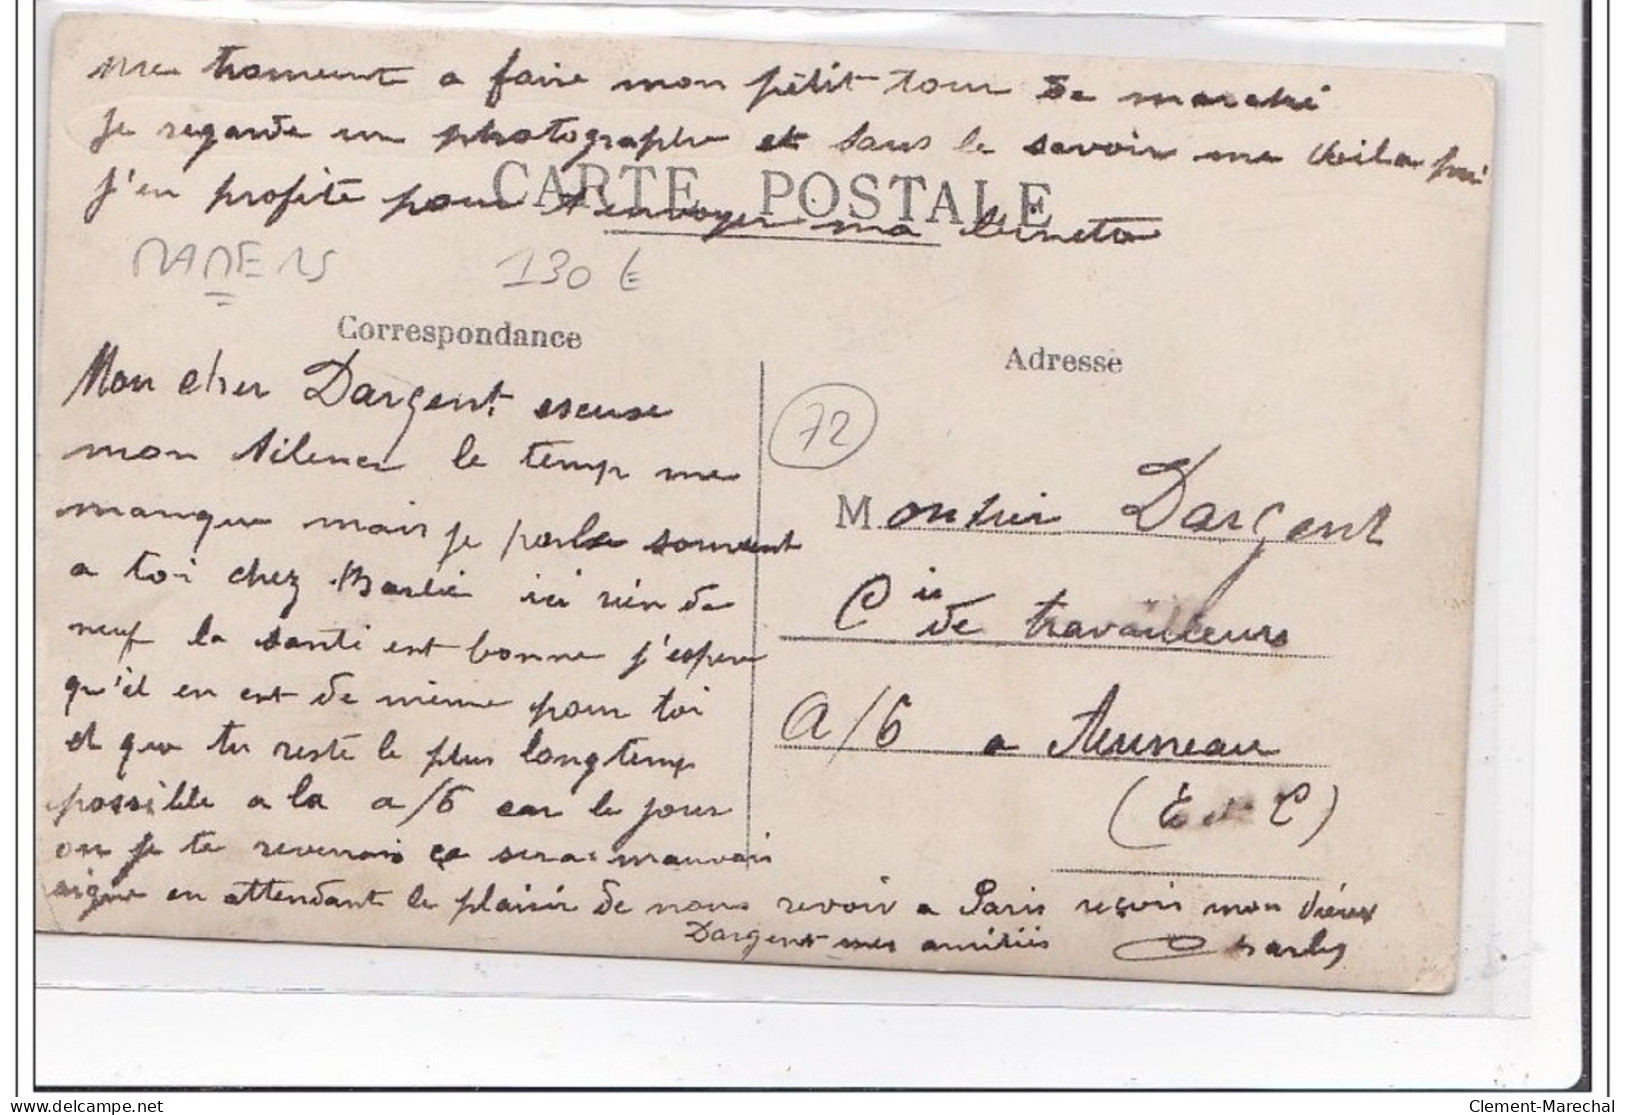 me trouvant a faire mon petit tour de marché
je regarde un photographe et sans le savoir me voila pri
j'en profite pour t envoyer ma binette
CARTE POSTALE
MAMERS 130 €
Correspondance
Mon cher Dargent, escuse
mon silence le temp me
manque mais je parle souvent
a toi chez ici rien de
neuf la santé est bonne j'espere
qu'il en est de même pour toi
et que tu reste le plus longtemp
possible a la a/6 car le jour
ou je te reverrais ça sera mauvais
signe en attendant le plaisir de nous revoir a Paris reçois mon vieux
Dargent mes amitiés Charles
Adresse
72
Monsieur Dargent
Cie de travailleurs
a/6 a Auneau
(E et L)
delcampe.net
Clement-Marechal